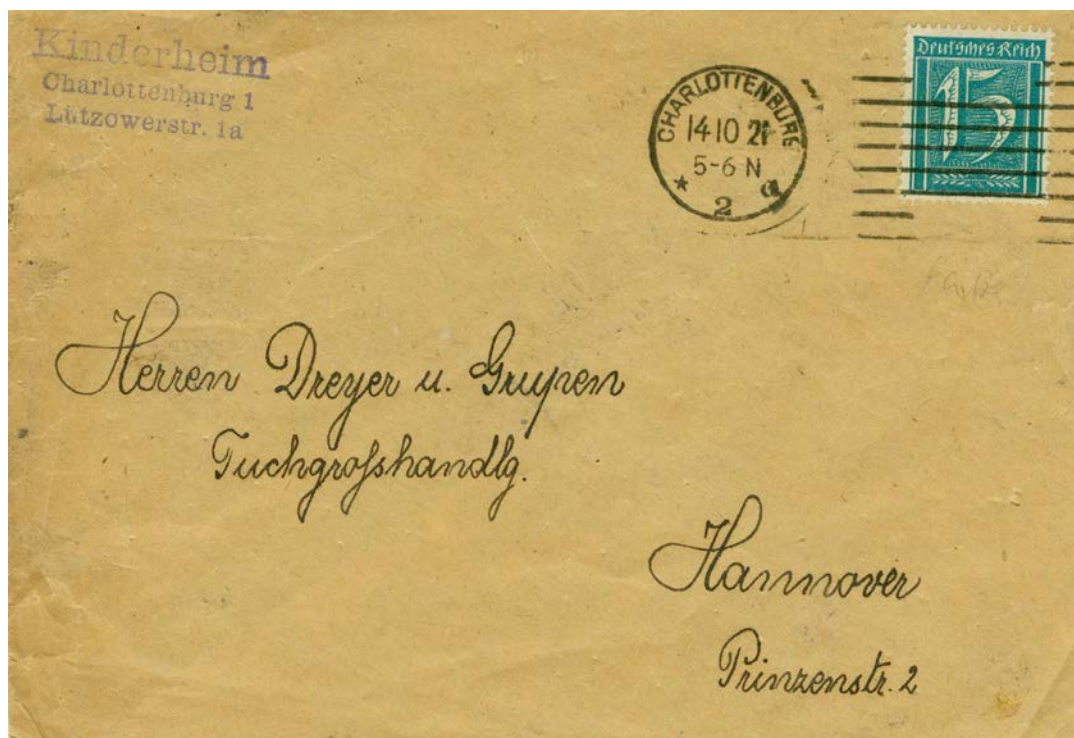 Kinderheim
Charlottenburg 1
Lützowerstr. 1a
CHARLOTTENBURG
14 10 21
5-6 N
* 2 a
Deutsches Reich
15
Herren Dreyer u. Grupen
Tuchgroſshandlg.
Hannover
Prinzenstr. 2